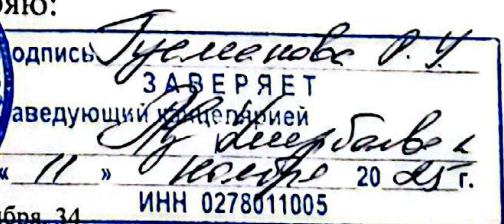 ряю:
одпись Гуслманова Р. У.
ЗАВЕРЯЕТ
аведующий канцелярией
« 11 » ноября 2025 г.
ИНН 0278011005
бря, 34